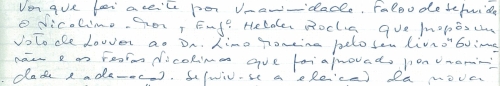 vor que foi aceite por unanimidade. Falou de seguida
o Nicolino-Mor, Engº. Helder Rocha que propôs um
voto de Louvor ao Dr. Lino Moreira pelo seu livro "Guima-
rães e as Festas Nicolinas que foi aprovado por unanimi-
dade e aclamação. Seguiu-se a eleição da nova